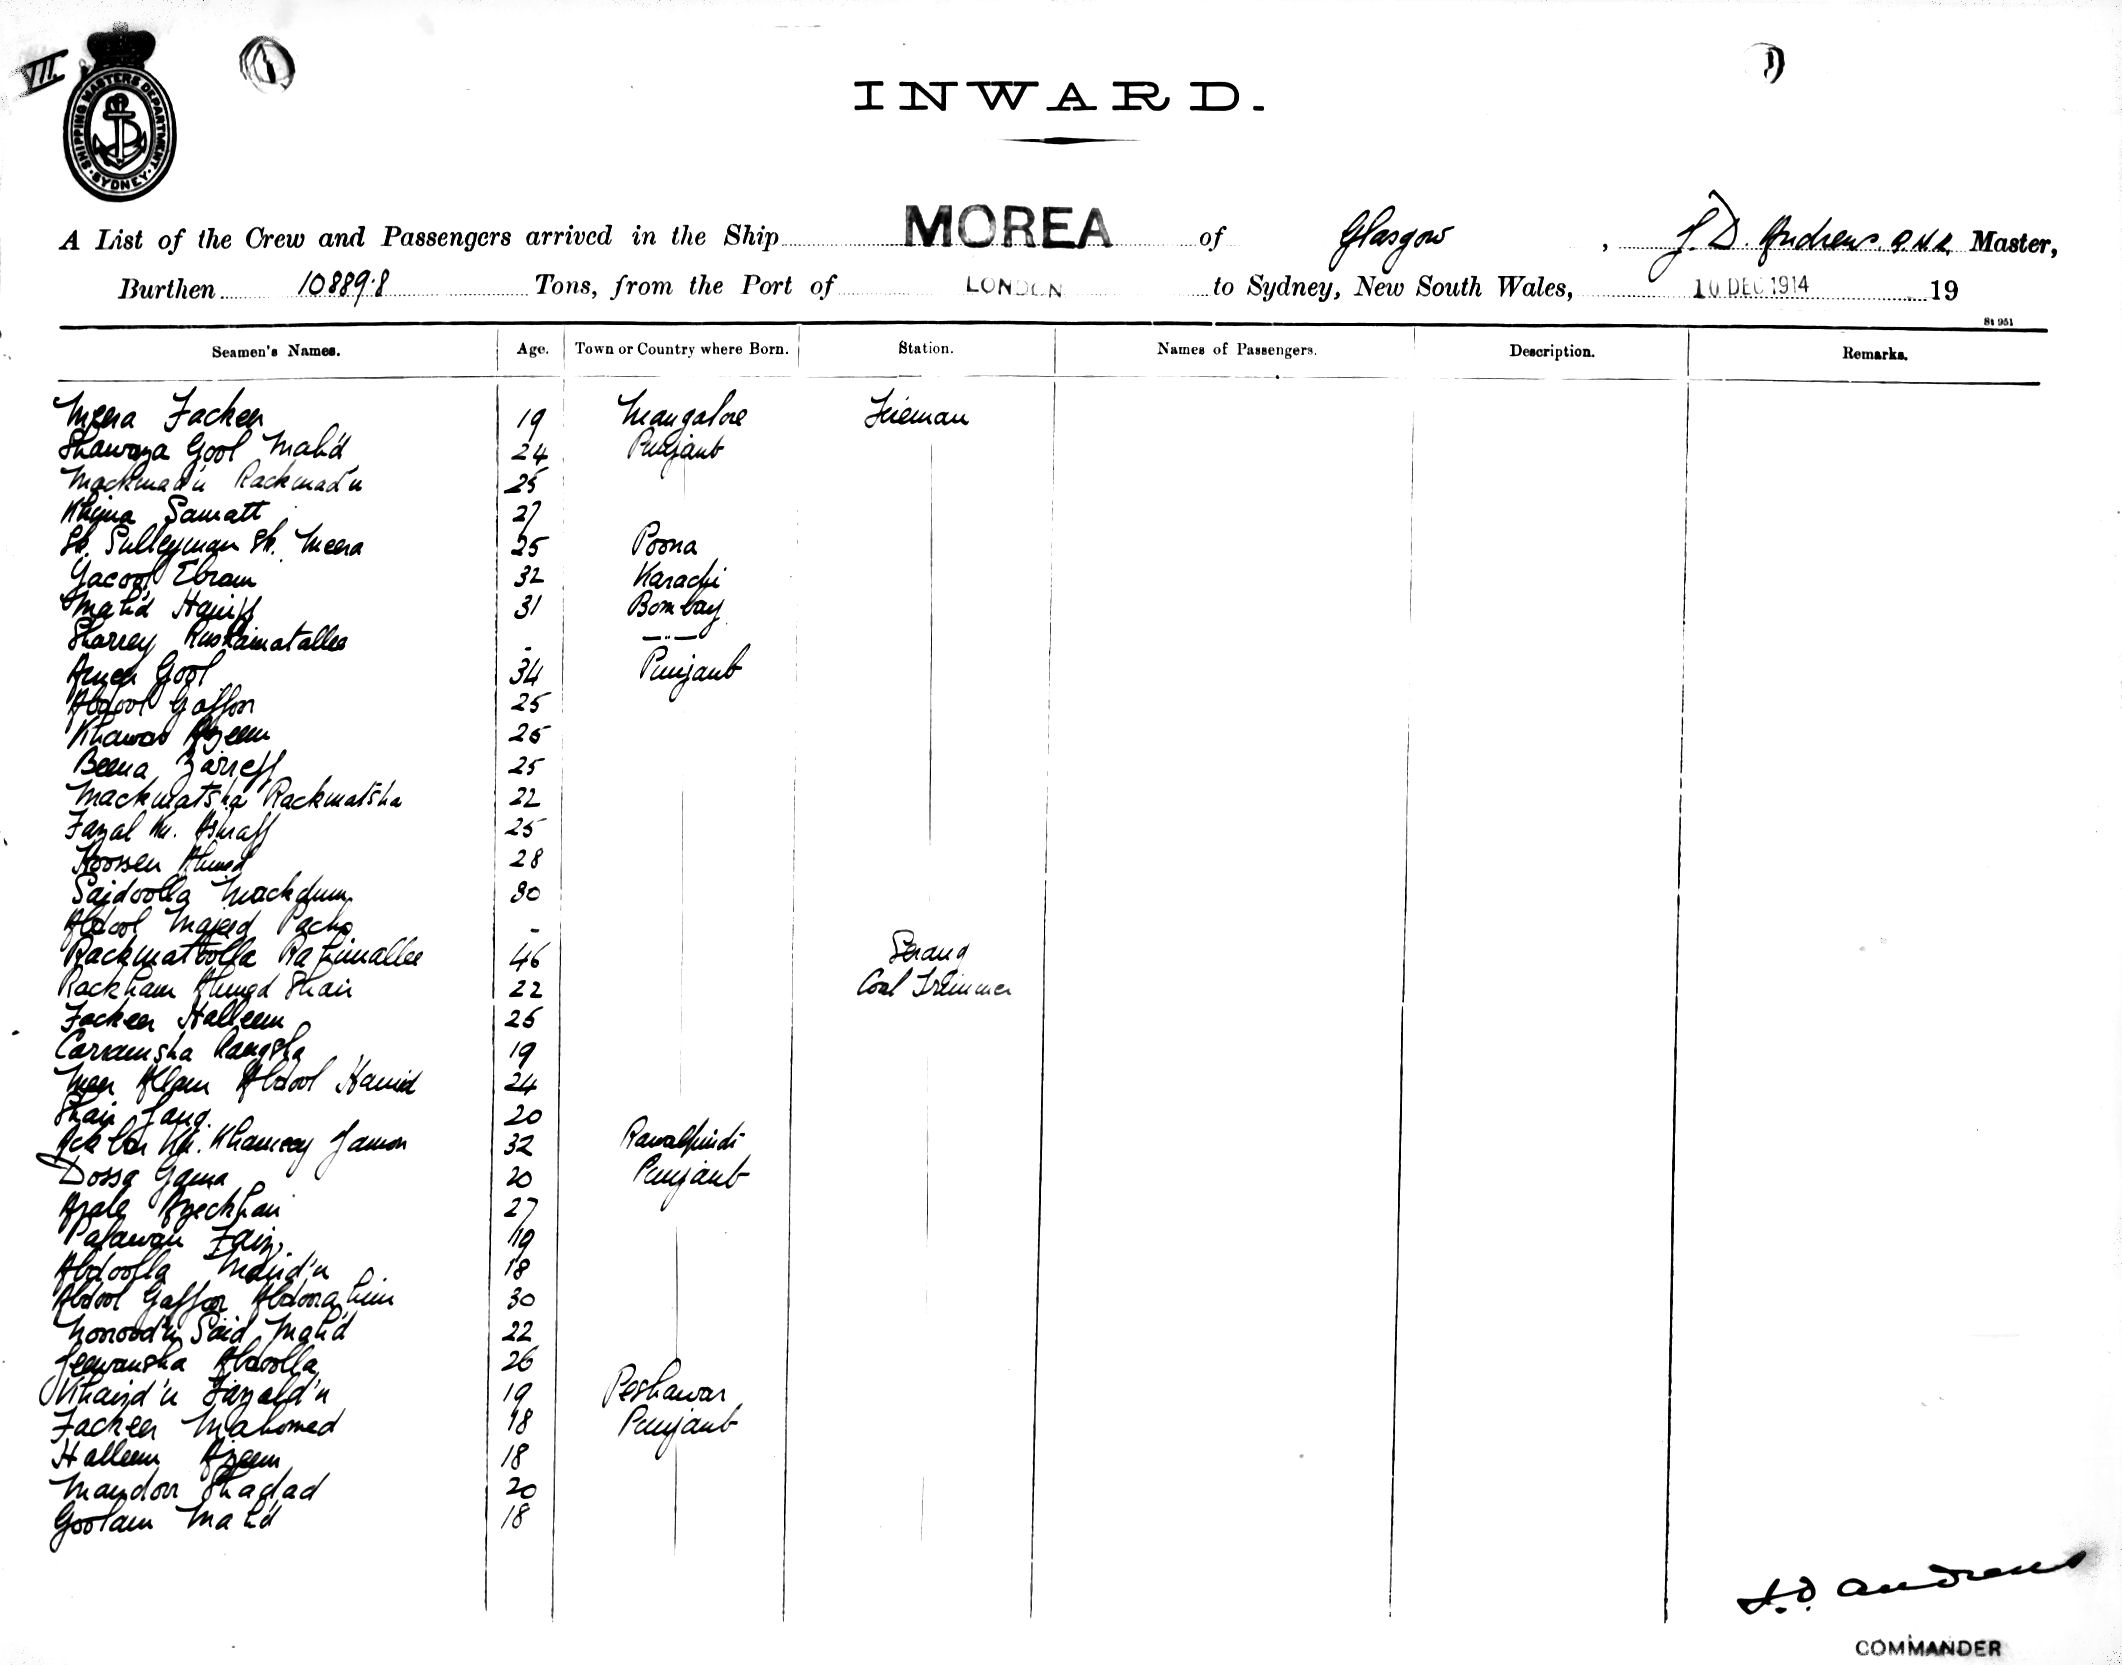 III.
SHIPPING MASTERS DEPARTMENT
SYDNEY
INWARD.
A List of the Crew and Passengers arrived in the Ship MOREA of Glasgow, J. D. Andrews R.N.R. Master,
Burthen 10889.8 Tons, from the Port of LONDON to Sydney, New South Wales, 10 DEC 1914 19
St 951
Seamen's Names. Age. Town or Country where Born. Station. Names of Passengers. Description. Remarks.
Meera Fackeer 19 Mangalore Fireman
Shawaza Gool Mah'd 24 Punjaub
Mackmad'n Rackmad'n 25
Khyma Samatt 27
Sk. Sulleyman Sk. Meera 25 Poona
Yacoob Ebram 32 Karachi
Mah'd Haniff 31 Bombay
Sharrey -"-
Ameer Gool 34 Punjaub
Abdool Gaffoor 25
Khawas Azeem 25
Beena Zarreff 25
Mackmatsha Rackmatsha 22
Fazal Kn. Ashraff 25
Hoosen Ahmed 28
Saidoolla Mackdum 30
Abdool Majeed Pacha -
Rackmatoolla Rahimallee 46 Serang
Rackham Ahmed Shair 22 Coal Trimmer
Fackeer Halleem 25
Carramsha Rangsha 19
Meer Allam Abdool Hamid 24
Shair Jang. 20
Ackbar Kn. Khameey Jamon 32 Rawalpindi
Dossa Gama 20 Punjaub
Azala Azeckhan 27
Palawan Faiz. 19
Abdoolla Majid'n 18
Abdool Gaffoor Abdoorahim 30
Noorood'n Said Mah'd 22
Jeewansha Abdoolla 26
Khaizd'n Fazald'n 19 Peshawar
Fackeer Mahomed 18 Punjaub
Halleem Azeem 18
Mandoor Shadad 20
Goolam Mah'd 18
J. D. Andrews
COMMANDER